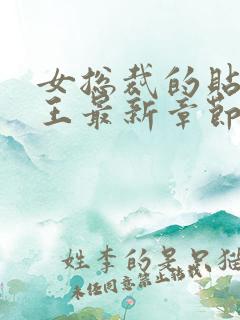 女总裁的贴
王最新章节
姓李的呆呆猫
未经同意禁止转载